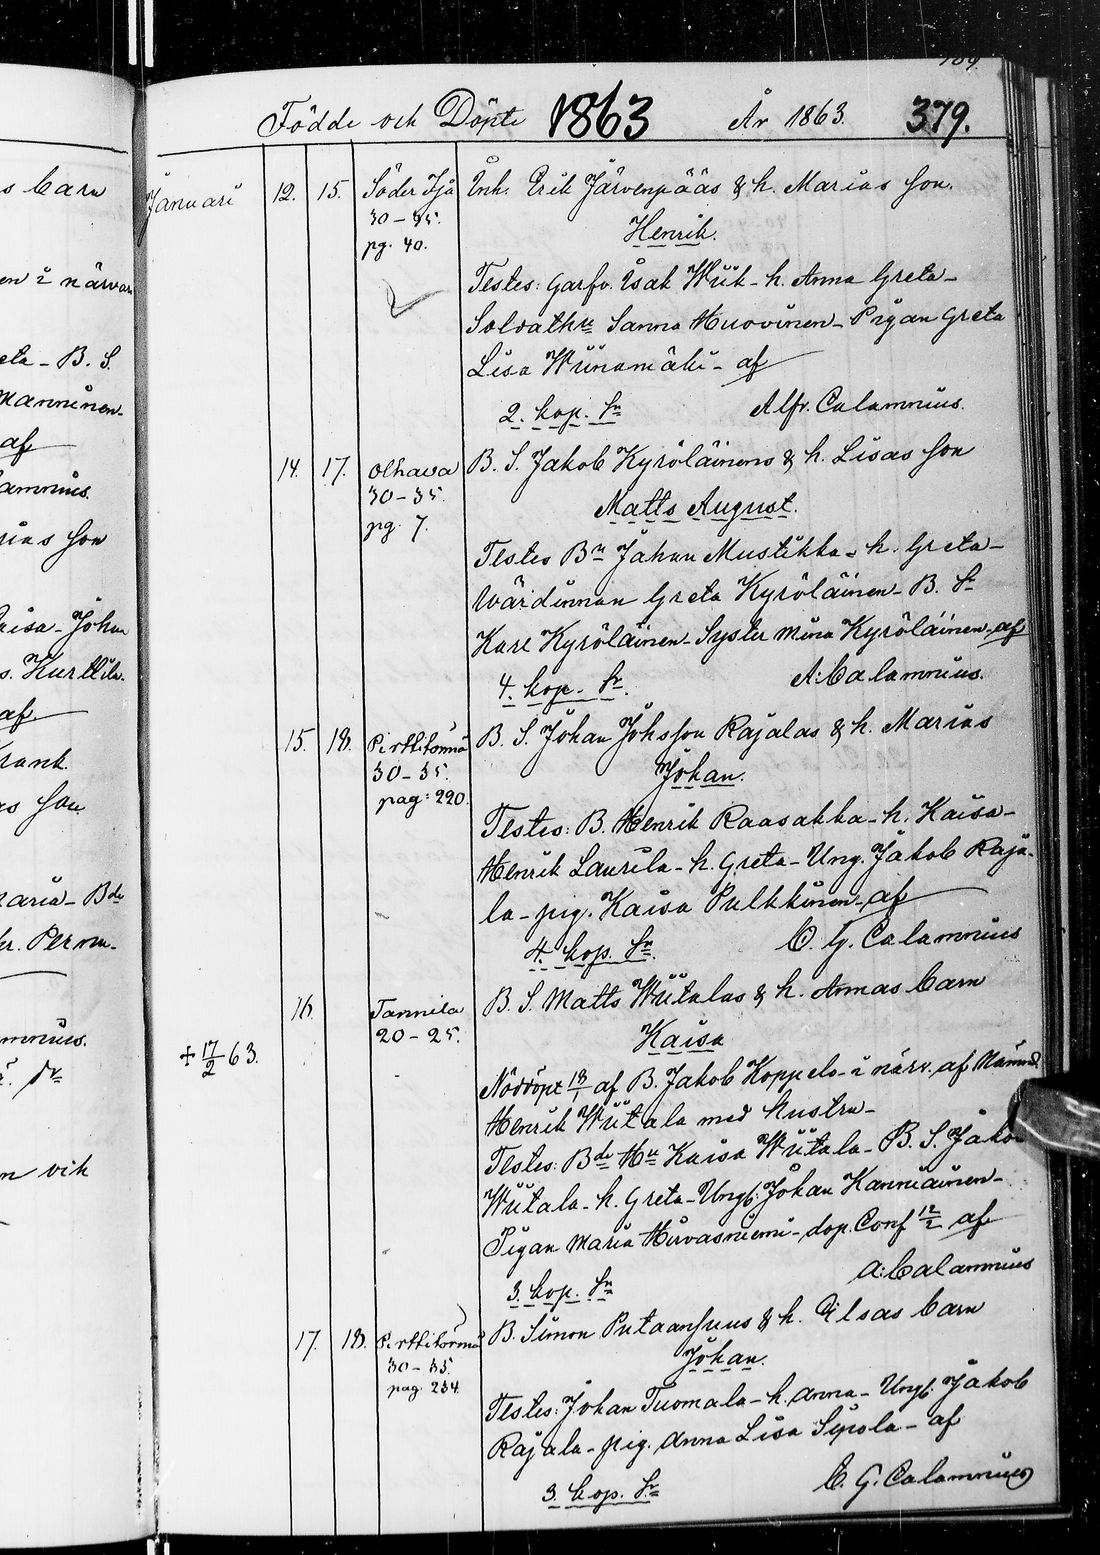 s barn
en i närvaro
eta - B. S.
Manninen -
af
amnius.
rias son
aisa - Johan
s. Kurttila.
af
rank.
as son
aria - Bde
hr. Permu -
amnius.
n vik
Födde och Döpte 1863 År 1863. 379.
Januari 12. 15. Söder Ijå Inh. Erik Järvenpääs & h. Marias son.
30-35.
pg. 40.
Henrik.
Testes: Garfv. Isak Wiik - h. Anna Greta -
Soldathu Sanna Huovinen - Pigan Greta
Lisa Wiinamäki - af
2. kop. Sr Alfr. Calamnius.
14. 17. Olhava B. S. Jakob Kyröläinens & h. Lisas son
30-35.
pg. 7.
Matts August.
Testes Bn Johan Mustikka - h. Greta -
Wärdinnan Greta Kyröläinen - B. Sr
Karl Kyröläinen - Syster Mina Kyröläinen - af
4. kop. Sr. A: Calamnius.
15. 18. Pirttitörmä B. S. Johan Johsson Rajalas & h. Marias
30-35.
pag: 220.
Johan.
Testes: B. Henrik Raasakka - h. Kaisa -
Henrik Laurila - h. Greta - Ung. Jakob Raja-
la - pig. Kaisa Pulkkinen - af
4. kop. Sr. C. G. Calamnius
16. Tannila B. S. Matts Wiitalas & h. Annas barn
20-25.
+ 17/2 63.
Kaisa
Nöddöpt 18/1 af B. Jakob Koppelo - i närv. af Nämnd.
Henrik Wiitala med hustru -
Testes: Bde Hu Kaisa Wiitala - B. S. Jakob
Wiitala - h. Greta - Ungk: Johan Kanniainen -
Pigan Maria Hirvasniemi - dop. Conf 12/2 af
3. kop. Sr A: Calamnius
17. 18. Pirttitörmä B. Simon Putaansuus & h. Elsas barn
30-35.
pag. 234.
Johan.
Testes: Johan Tuomala - h. Anna - Ungk. Jakob
Rajala - pig. Anna Lisa Sipola - af
3. kop. Sr C. G. Calamnius